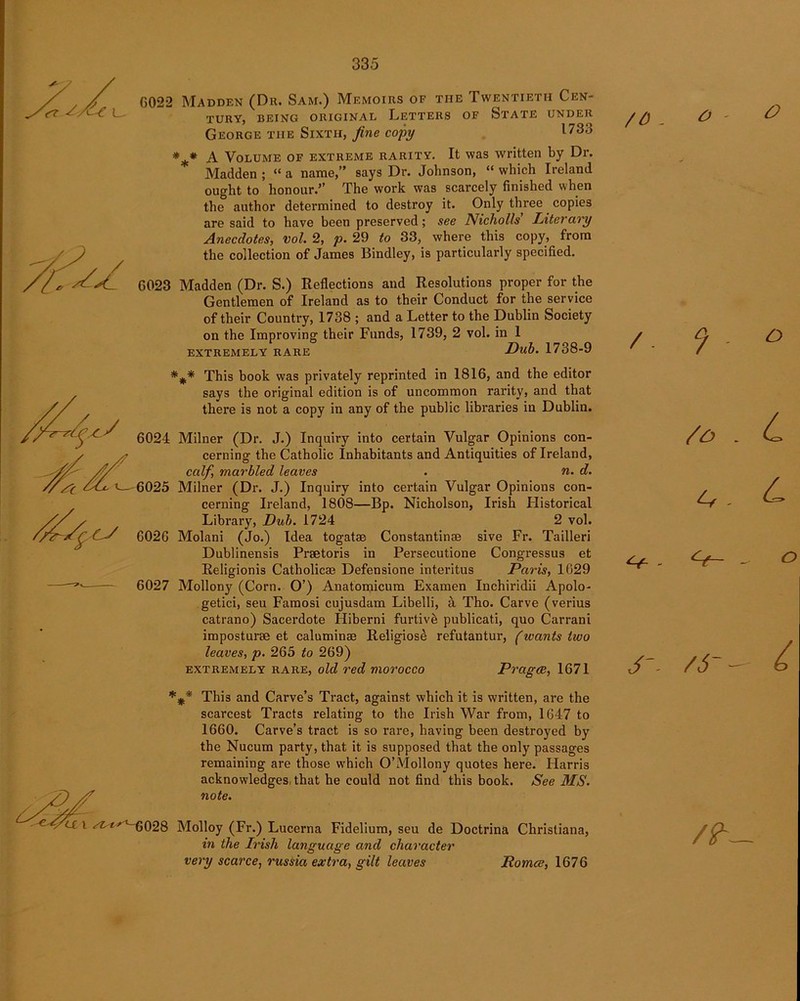 335
6022 Madden (Dr. Sam.) Memoirs of the Twentieth Cen-
tury, being original Letters of State under
George the Sixth, fine copy 1733
10 - 0 - 0
*** A Volume of extreme rarity. It was written by Dr.
Madden ; “ a name,” says Dr. Johnson, “ which Ireland
ought to honour.” The work was scarcely finished when
the author determined to destroy it. Only three copies
are said to have been preserved ; see Nicholls’ Literary
Anecdotes, vol. 2, p. 29 to 33, where this copy, from
the collection of James Bindley, is particularly specified.
6023 Madden (Dr. S.) Reflections and Resolutions proper for the
Gentlemen of Ireland as to their Conduct for the service
of their Country, 1738 ; and a Letter to the Dublin Society
on the Improving their Funds, 1739, 2 vol. in 1
EXTREMELY RARE Dub. 1738-9
1 - 9 - 0
*** This book was privately reprinted in 1816, and the editor
says the original edition is of uncommon rarity, and that
there is not a copy in any of the public libraries in Dublin.
6024 Milner (Dr. J.) Inquiry into certain Vulgar Opinions con-
cerning the Catholic Inhabitants and Antiquities of Ireland,
calf, marbled leaves . n. d.
10 . 6
6025 Milner (Dr. J.) Inquiry into certain Vulgar Opinions con-
cerning Ireland, 1808—Bp. Nicholson, Irish Historical
Library, Dub. 1724 2 vol.
4 - 6
6026 Molani (Jo.) Idea togatæ Constantinæ sive Fr. Tailleri
Dublinensis Prætoris in Persecutione Congressus et
Religionis Catholicæ Defensione interitus Paris, 1629
4 - 4 - 0
6027 Mollony (Corn. O’) Anatomicum Examen Inchiridii Apolo-
getici, seu Famosi cujusdam Libelli, à Tho. Carve (verius
catrano) Sacerdote Hiberni furtivè publicati, quo Carrani
imposturæ et caluminæ Religiosè refutantur, (wants two
leaves, p. 265 to 269)
EXTREMELY RARE, old red morocco Pragæ, 1671
5 - 15 - 6
*** This and Carve’s Tract, against which it is written, are the
scarcest Tracts relating to the Irish War from, 1647 to
1660. Carve’s tract is so rare, having been destroyed by
the Nucum party, that it is supposed that the only passages
remaining are those which O’Mollony quotes here. Harris
acknowledges that he could not find this book. See MS.
note.
6028 Molloy (Fr.) Lucerna Fidelium, seu de Doctrina Christiana,
in the Irish language and character
very scarce, russia extra, gilt leaves Romæ, 1676